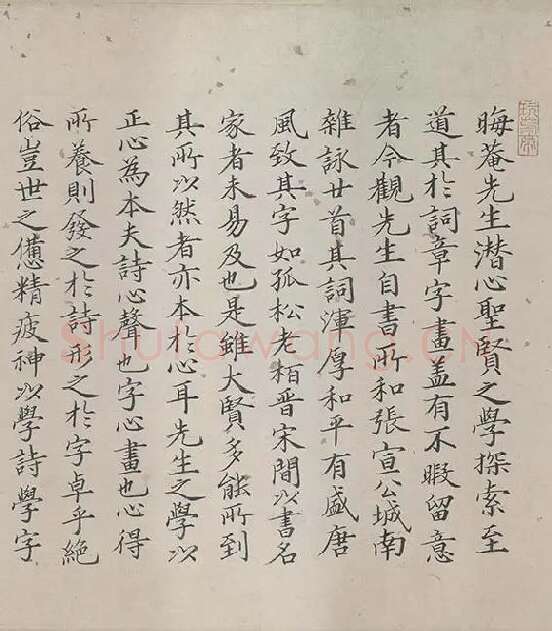 晦菴先生潛心聖賢之學探索至
道其於詞章字畫盖有不暇留意
者今觀先生自書所和張宣公城南
雜詠廿首其詞渾厚和平有盛唐
風致其字如孤松老栢晉宋間以書名
家者未易及也是雖大賢多能所到
其所以然者亦本於心耳先生之學以
正心為本夫詩心聲也字心畫也心得
所養則發之於詩形之於字卓乎絕
俗豈世之憊精疲神以學詩學字
Shufawang.CN